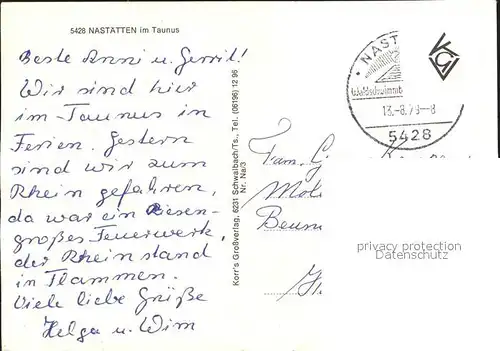 5428 NASTÄTTEN im Taunus
Beste Anni u. Gerrit!
Wir sind hier
im Taunus in
Ferien. Gestern
sind wir zum
Rhein gefahren,
da war ein Riesen-
großes Feuerwerk,
der Rhein stand
in Flammen.
Viele liebe Grüße
Helga u. Wim
Korr's Großverlag, 6231 Schwalbach/Ts., Tel. (06196) 12 96
Nr. Na/3
NAST
Waldschwimmb
13.-8.79-8
5428
KGV
Fam.
privacy protection
Datenschutz